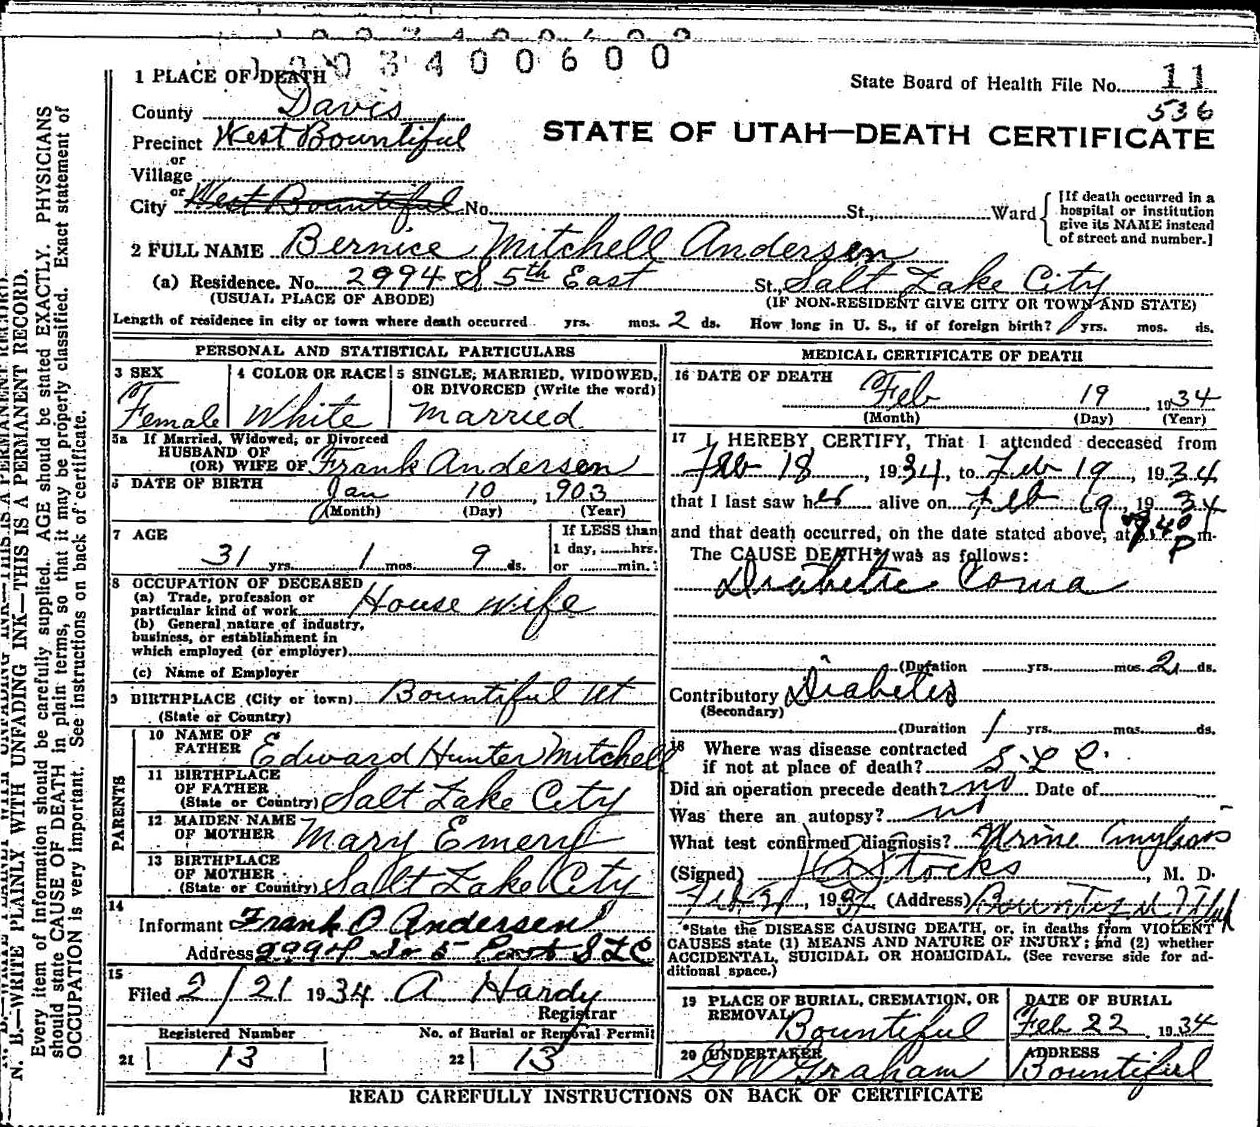 1003400600
1 PLACE OF DEATH
State Board of Health File No. 11
536
County Davis
STATE OF UTAH—DEATH CERTIFICATE
Precinct West Bountiful
or
Village
or
City West Bountiful No. St., Ward
[If death occurred in a
hospital or institution
give its NAME instead
of street and number.]
2 FULL NAME Bernice Mitchell Andersen
(a) Residence. No. 2994 S. 5th East St., Salt Lake City
(USUAL PLACE OF ABODE) (IF NON-RESIDENT GIVE CITY OR TOWN AND STATE)
Length of residence in city or town where death occurred yrs. mos. 2 ds. How long in U. S., if of foreign birth? yrs. mos. ds.
PERSONAL AND STATISTICAL PARTICULARS
3 SEX 4 COLOR OR RACE 5 SINGLE, MARRIED, WIDOWED,
OR DIVORCED (Write the word)
Female White Married
5a If Married, Widowed, or Divorced
HUSBAND OF
(OR) WIFE OF Frank Andersen
6 DATE OF BIRTH Jan 10, 1903
(Month) (Day) (Year)
7 AGE If LESS than
31 yrs. 1 mos. 9 ds. 1 day, hrs.
or min.
8 OCCUPATION OF DECEASED
(a) Trade, profession or
particular kind of work House wife
(b) General nature of industry,
business, or establishment in
which employed (or employer)
(c) Name of Employer
9 BIRTHPLACE (City or town) Bountiful Ut
(State or Country)
PARENTS
10 NAME OF
FATHER Edward Hunter Mitchell
11 BIRTHPLACE
OF FATHER
(State or Country) Salt Lake City
12 MAIDEN NAME
OF MOTHER Mary Emery
13 BIRTHPLACE
OF MOTHER
(State or Country) Salt Lake City
14
Informant Frank O Andersen
Address 2994 So 5 East S L C
15
Filed 2/21 1934 A Hardy
Registrar
Registered Number No. of Burial or Removal Permit
21 13 22 13
MEDICAL CERTIFICATE OF DEATH
16 DATE OF DEATH Feb 19, 1934
(Month) (Day) (Year)
17 I HEREBY CERTIFY, That I attended deceased from
Feb 18, 1934, to Feb 19, 1934
that I last saw her alive on Feb 19, 1934
and that death occurred, on the date stated above, at 9.40 P m.
The CAUSE DEATH* was as follows:
Diabetic Coma
(Duration yrs. mos. 2 ds.
Contributory Diabetes
(Secondary)
(Duration 1 yrs. mos. ds.
18 Where was disease contracted
if not at place of death? S. L C.
Did an operation precede death? no Date of
Was there an autopsy? no
What test confirmed diagnosis? Urine
(Signed) Stocks, M. D.
1934 (Address) Bountiful Utah
*State the DISEASE CAUSING DEATH, or, in deaths from VIOLENT
CAUSES state (1) MEANS AND NATURE OF INJURY; and (2) whether
ACCIDENTAL, SUICIDAL OR HOMICIDAL. (See reverse side for ad-
ditional space.)
19 PLACE OF BURIAL, CREMATION, OR
REMOVAL Bountiful
DATE OF BURIAL
Feb 22 1934
20 UNDERTAKER
G W Graham
ADDRESS
Bountiful
READ CAREFULLY INSTRUCTIONS ON BACK OF CERTIFICATE
N. B.—WRITE PLAINLY WITH UNFADING INK—THIS IS A PERMANENT RECORD.
Every item of information should be carefully supplied. AGE should be stated EXACTLY. PHYSICIANS
should state CAUSE OF DEATH in plain terms, so that it may be properly classified. Exact statement of
OCCUPATION is very important. See instructions on back of certificate.